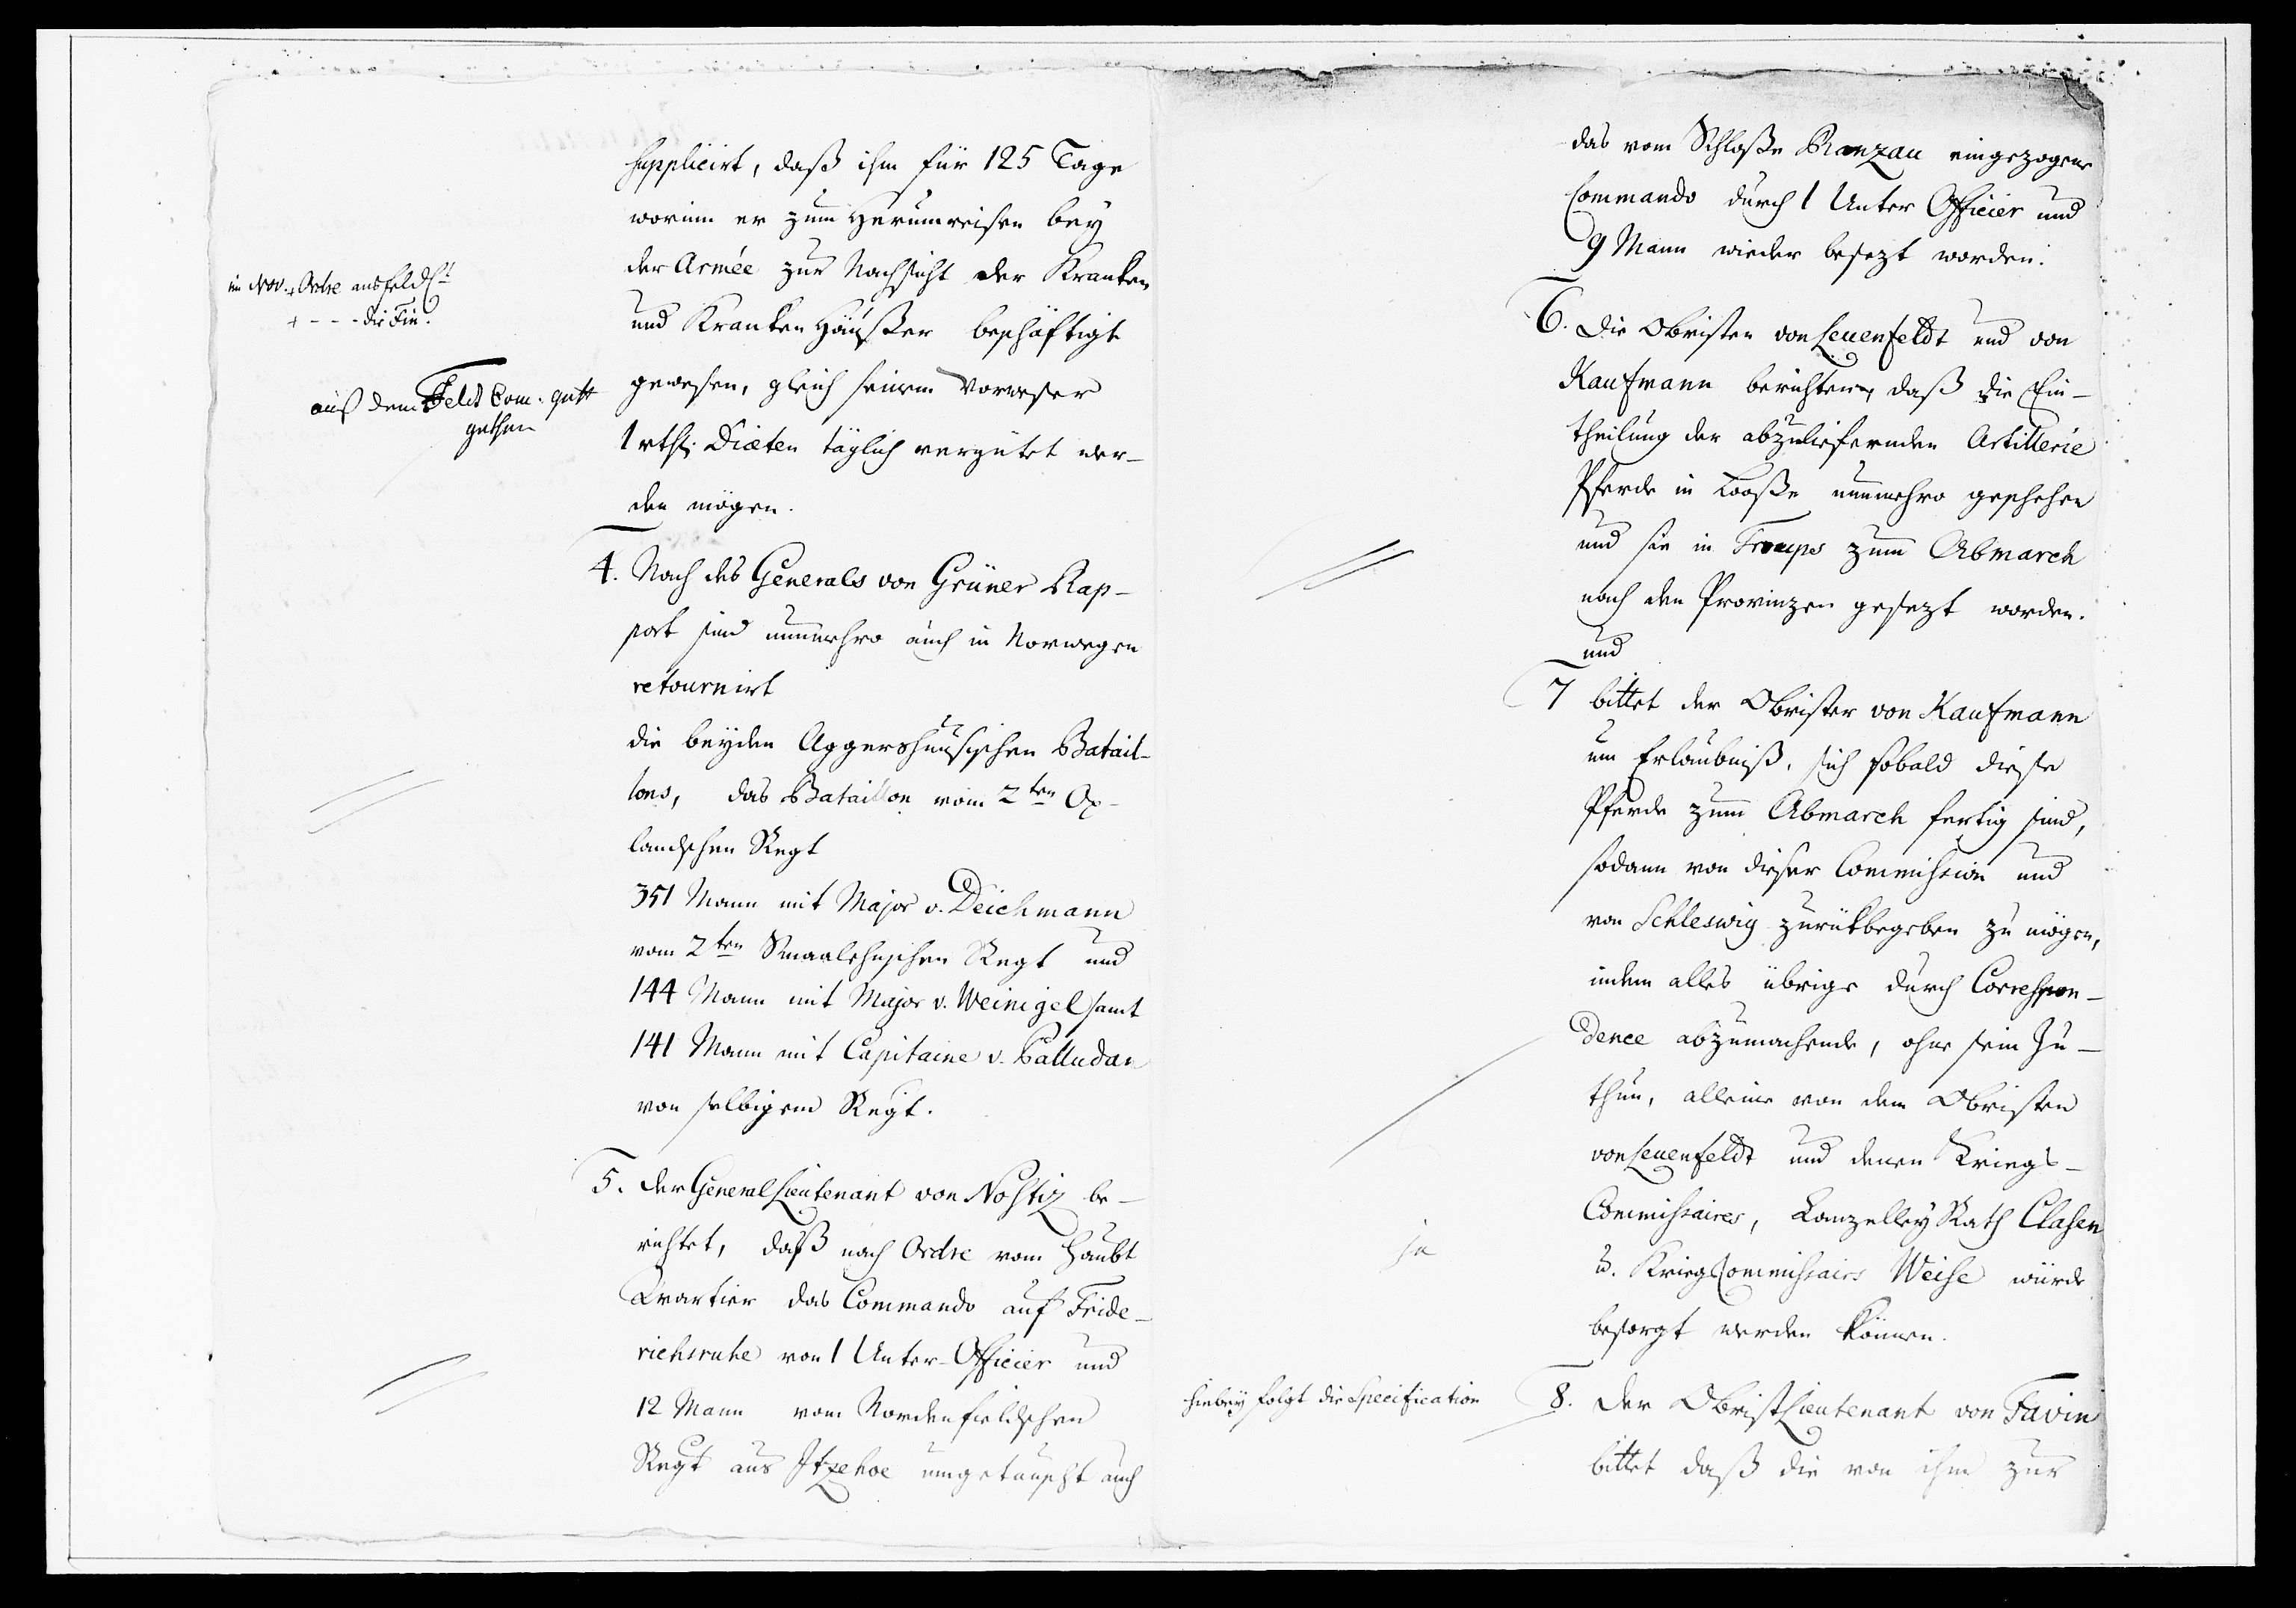 supplicirt, daß ihm für 125 Tage
worinn er zum Herumreisen bey
der Armée zur Nachsicht der Kranken
im Nov. + Ordre ans Feld
+ - - - die Fin.
und Kranken Häußer beschäftigt
gewesen, gleich seinem Vorweser
aus dem Feldt Com. gutt
gethan
1 rthl. Diæten täglich vergütet wer-
den mögen.
4. Nach des Generals von Grüner Rap-
port sind nunmehro auch in Norwegen
retournirt
die beyden Aggershuusischen Batail-
lons, das Bataillon vom 2ten Op-
landschen Regt
351 Mann mit Major v. Deichmann
vom 2ten Smaalehnschen Regt und
144 Mann mit Major v. Weinigel samt
141 Mann mit Capitaine v. Palludan
von selbigem Regt.
5. Der General Lieutenant von Nostiz be-
richtet, daß nach Ordre vom Haubt
Quartier das Commando auf Fride-
richsruhe von 1 Unter-Officier und
12 Mann vom Nordenfieldschen
Regt aus Itzehoe umgetauscht auch
das vom Schloße Ranzau eingezogene
Commando durch 1 Unter Officier und
9 Mann wieder besezt worden.
6. Die Obristen von Leuenfeldt und von
Kaufmann berichten, daß die Ein-
theilung der abzuliefernden Artillerie
Pferde in Looße nunmehro geschehen
und sie in Troups zum Abmarch
nach den Provinzen gesezt worden.
und
7 bittet der Obrister von Kaufmann
um Erlaubniß, sich sobald diese
Pferde zum Abmarch fertig sind,
sodann von dieser Commission und
von Schleswig zurükbegeben zu mögen,
indem alles übrige durch Correspon-
dence abzumachende, ohne sein Zu-
thun, alleine von dem Obristen
von Leuenfeldt und denen Kriegs-
Commissaires, Canzelley Rath Clasen
u. Kriegs Commissairs Weise würde
ja
besorgt werden können.
hiebey folgt die Specification
8. Der Obrist Lieutenant von Favin
bittet daß die von ihm zur